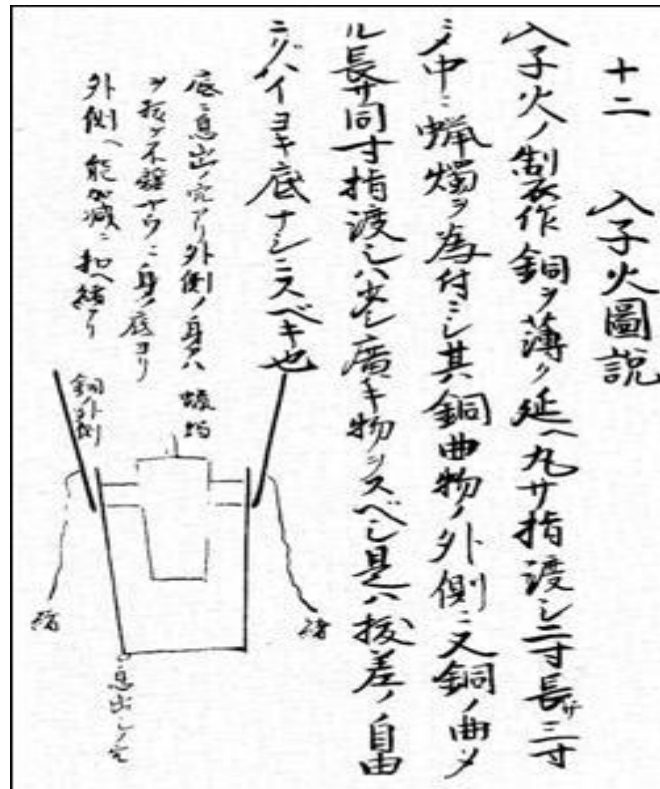 十二　入子火圖説
入子火ノ制衣作銅ヲ薄ク延ヘ丸サ指渡シ二寸長サ三寸
ニメ中ニ蝋燭ヲ為付ニシ其銅曲物ノ外側ニ又銅ノ曲ツメ
ル長サ同寸指渡シハ少シ廣キ物ヲスベシ是ハ抜差ノ自由
ニ ハイヨキ底ナシニスベキ也
底ニ息出ノ穴アリ外側ノ身ハ
ヲ抜ケ不 ヤウニ身ノ底ヨリ
外側ヘ能加減ニ扣ヘ緒アリ
蝋燭
銅外側
緒
緒
息出シノ穴